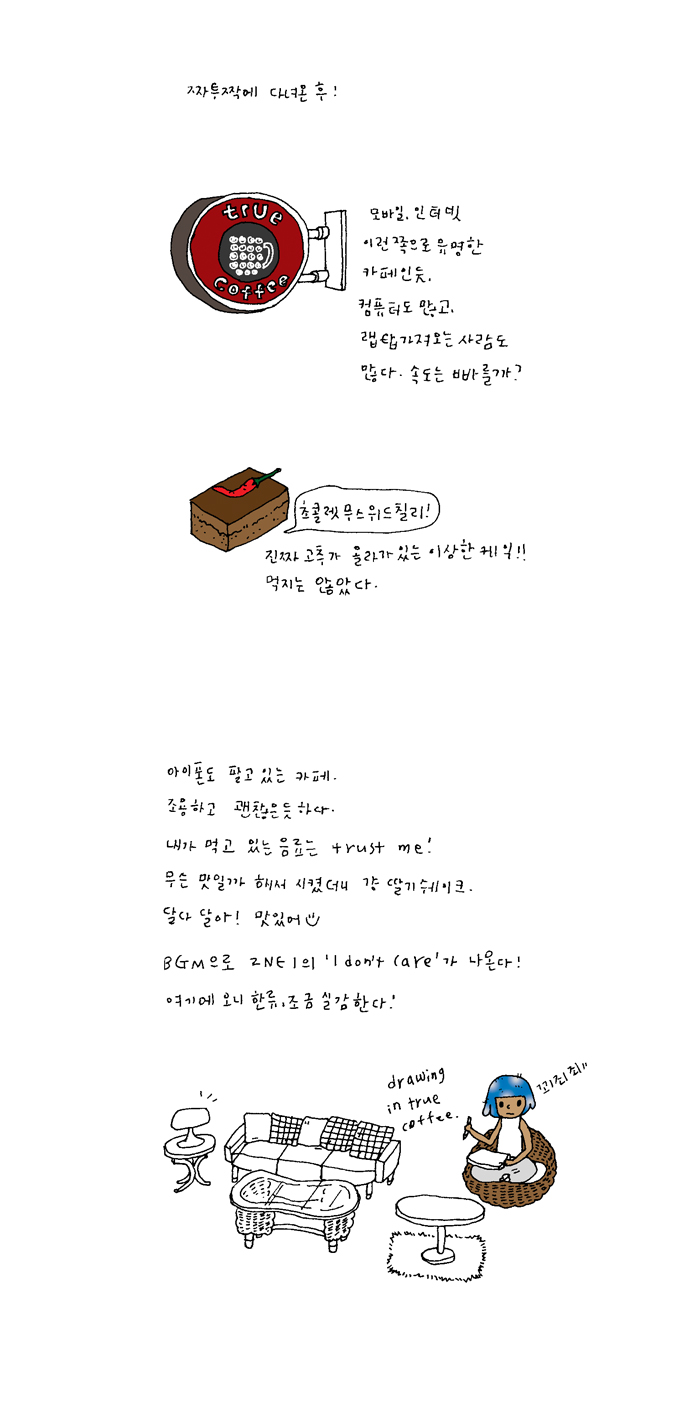 짜투짝에 다녀온 후!
true
coffee
모바일, 인터넷
이런쪽으로 유명한
카페인듯.
컴퓨터도 많고,
랩탑가져오는 사람도
많다. 속도는 빠를까?
쵸콜렛무스위드칠리!
진짜 고추가 올라가있는 이상한 케잌!!
먹지는 않았다.
아이폰도 팔고 있는 카페.
조용하고 괜찮은듯하다.
내가 먹고 있는 음료는 trust me!
무슨 맛일까 해서 시켰더니 걍 딸기쉐이크.
달다 달아! 맛있어
BGM으로 2NE1의 'I don't care'가 나온다!
여기에 오니 한류, 조금 실감한다!
drawing
in true
coffee.
꾀죄죄"